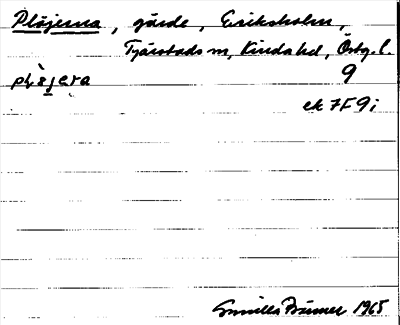 Plöjerna, gärde, Eriksholm,
Tjärstads sn, Kinda hd, Östg. l.
plö̀jeʀa 9
ek 7F9i
Gunilla Brunner 1965